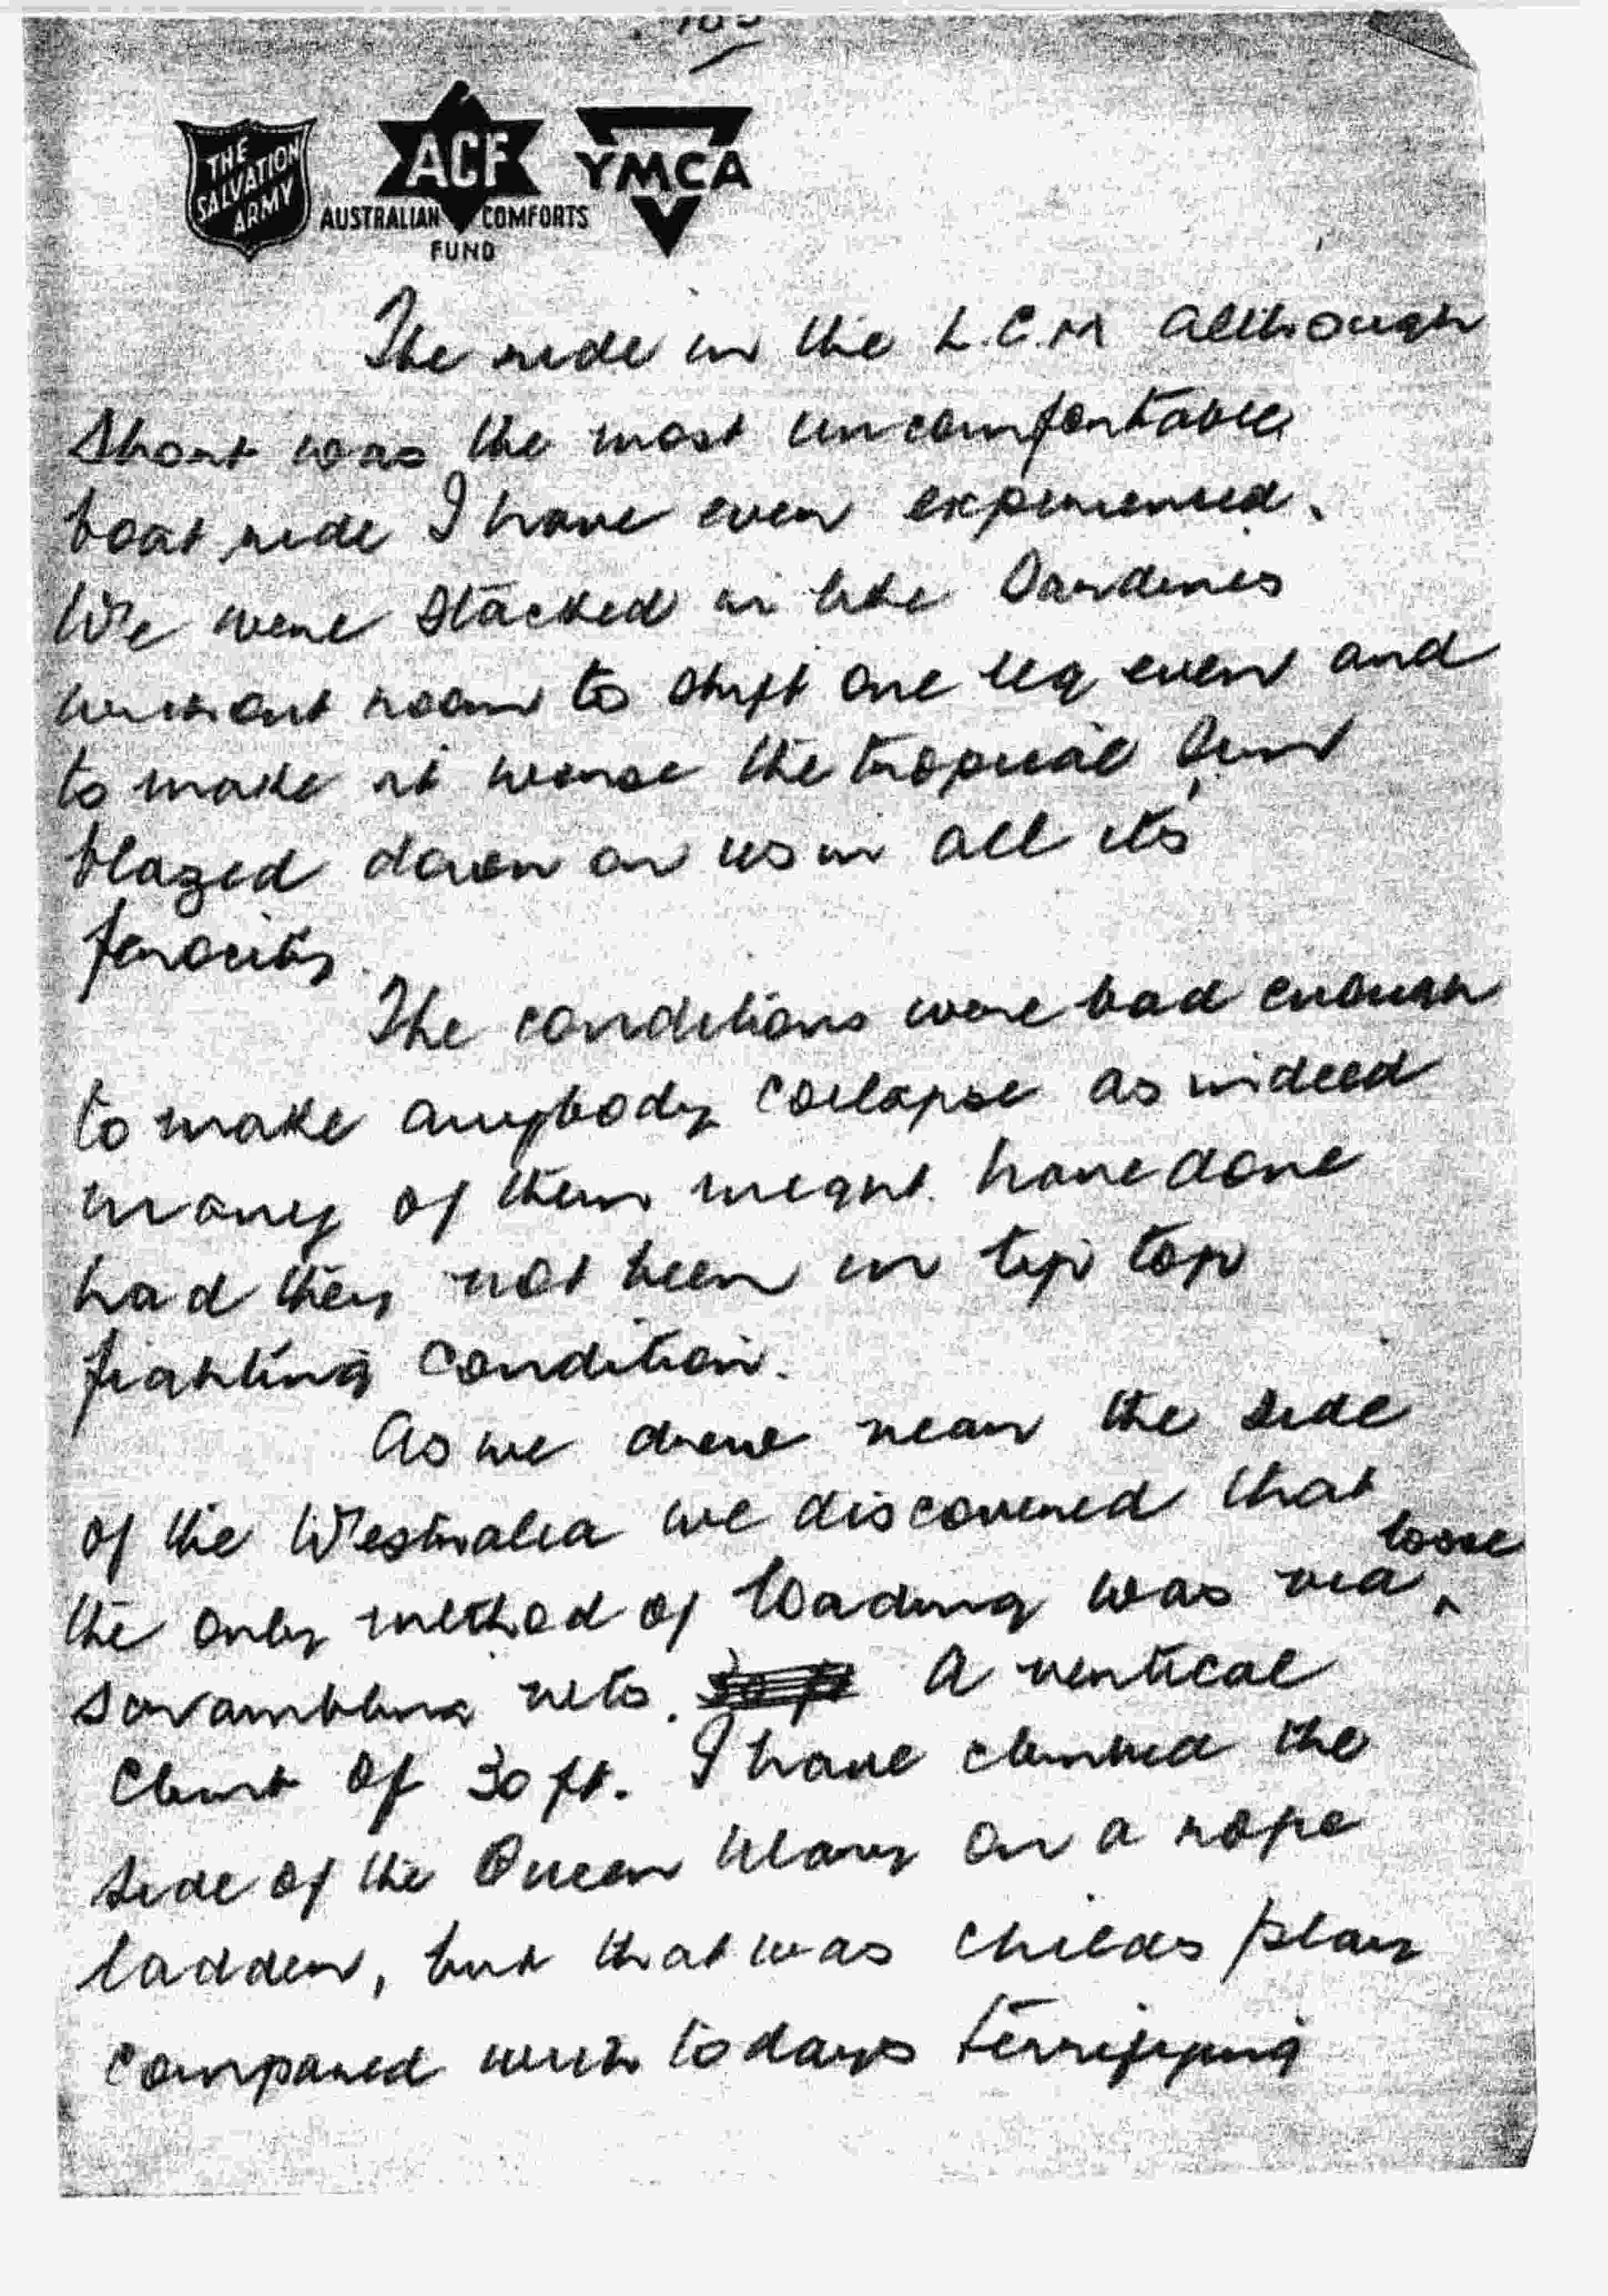 THE SALVATION ARMY
ACF
AUSTRALIAN COMFORTS FUND
YMCA
The ride in the L.C.M although
short was the most uncomfortable
boat ride I have ever experienced.
We were stacked in like Sardines
without room to shift one leg even and
to make it worse the tropical sun
blazed down on us in all its
ferocity.
The conditions were bad enough
to make anybody collapse as indeed
many of them might have done
had they not been in tip top
fighting condition.
As we drew near the side
of the Westralia we discovered that
the only method of loading was via loose
scrambling nets. A vertical
climb of 30 ft. I have climbed the
side of the Queen Mary on a rope
ladder, but that was childs play
compared with todays terrifying